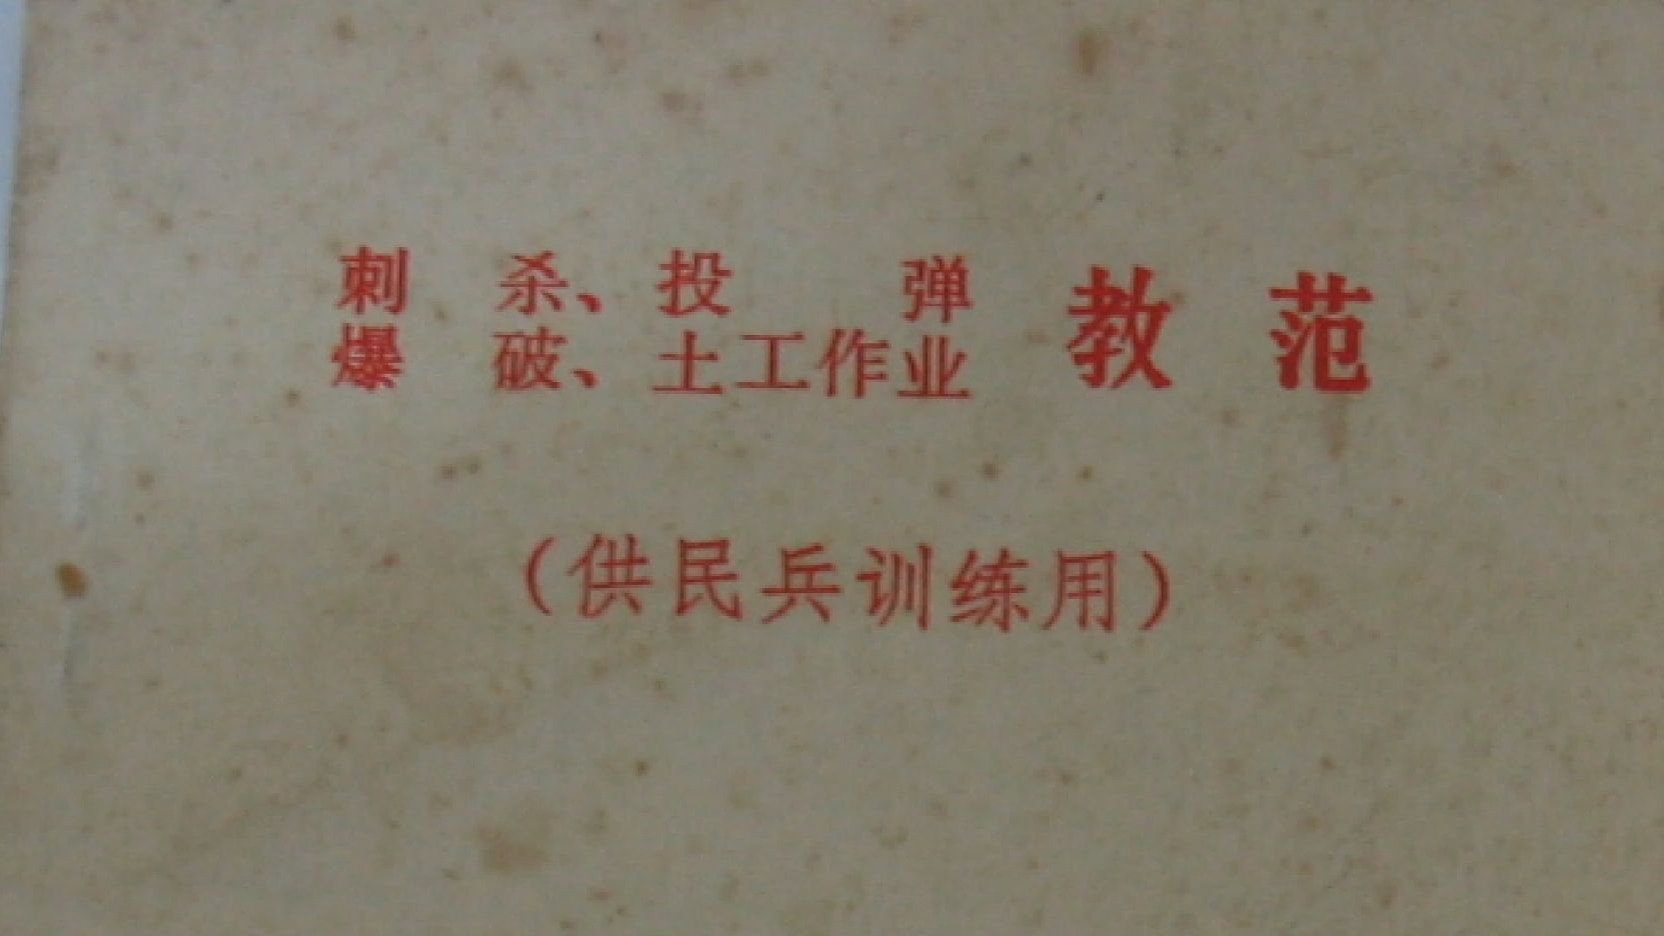 刺杀、投弹
爆破、土工作业
教范
（供民兵训练用）